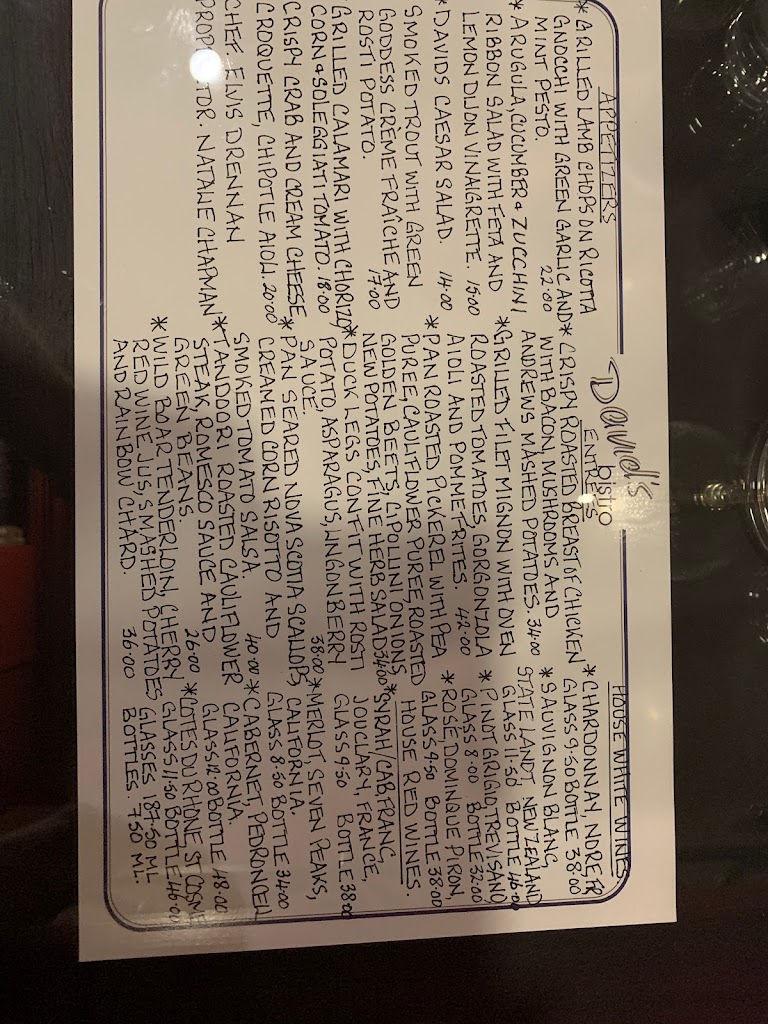 David's
bistro
APPETIZERS
*GRILLED LAMB CHOPS ON RICOTTA
GNOCCHI WITH GREEN GARLIC AND
MINT PESTO. 22.00
*ARUGULA, CUCUMBER & ZUCCHINI
RIBBON SALAD WITH FETA AND
LEMON DIJON VINAIGRETTE. 15.00
*DAVIDS CAESAR SALAD. 14.00
SMOKED TROUT WITH GREEN
GODDESS CRÈME FRAÎCHE AND
ROSTI POTATO. 17.00
*GRILLED CALAMARI WITH CHORIZO,
CORN & SOLEGGIATI TOMATO. 18.00
CRISPY CRAB AND CREAM CHEESE
CROQUETTE, CHIPOTLE AIOLI. 20.00
CHEF. ELVIS DRENNAN
NATALIE CHAPMAN
ENTRÉES
*CRISPY ROASTED BREAST OF CHICKEN
WITH BACON, MUSHROOMS AND
ANDREWS MASHED POTATOES. 34.00
*GRILLED FILET MIGNON WITH OVEN
ROASTED TOMATOES, GORGONZOLA
AIOLI AND POMME FRITES. 42.00
*PAN ROASTED PICKEREL WITH PEA
PUREE, CAULIFLOWER PUREE, ROASTED
GOLDEN BEETS, CIPOLLINI ONIONS
NEW POTATOES, FINE HERB SALAD 34.00
*DUCK LEGS CONFIT WITH ROSTI
POTATO, ASPARAGUS, LINGONBERRY
SAUCE. 38.00
*PAN SEARED NOVA SCOTIA SCALLOPS,
CREAMED CORN RISOTTO AND
SMOKED TOMATO SALSA. 40.00
*TANDOORI ROASTED CAULIFLOWER
STEAK, ROMESCO SAUCE AND
GREEN BEANS. 26.00
*WILD BOAR TENDERLOIN, CHERRY
RED WINE JUS, SMASHED POTATOES
AND RAINBOW CHARD. 36.00
HOUSE WHITE WINES
*CHARDONNAY, NORE, FR
GLASS 9.50 BOTTLE 38.00
*SAUVIGNON BLANC,
STATE LANDT, NEW ZEALAND
GLASS 11.50 BOTTLE 46.00
*PINOT GRIGIO, TREVISANO,
GLASS 8.00 BOTTLE 32.00
*ROSÉ, DOMINIQUE PIRON,
GLASS 9.50 BOTTLE 38.00
HOUSE RED WINES.
*SYRAH/CAB FRANC,
JOUCLARY, FRANCE,
GLASS 9.50 BOTTLE 38.00
*MERLOT, SEVEN PEAKS,
CALIFORNIA,
GLASS 8.50 BOTTLE 34.00
*CABERNET, PEDRONCELLI
CALIFORNIA.
GLASS 12.00 BOTTLE 48.00
*COTES DU RHONE ST COSME
GLASS 11.50 BOTTLE 46.00
GLASSES 187.50 ML
BOTTLES. 750 ML.